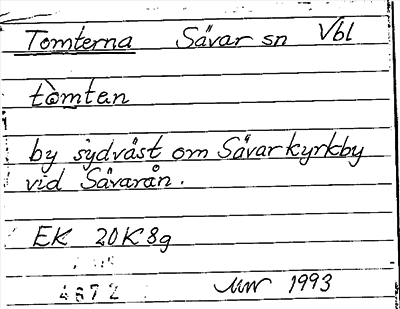 Tomterna Sävar sn Vbl
tòmtan
by sydväst om Sävar kyrkby
vid Sävarån.
EK 20K8g
4872
1993